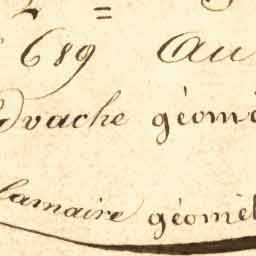 689 Au
vache géom
lamaire géomèt